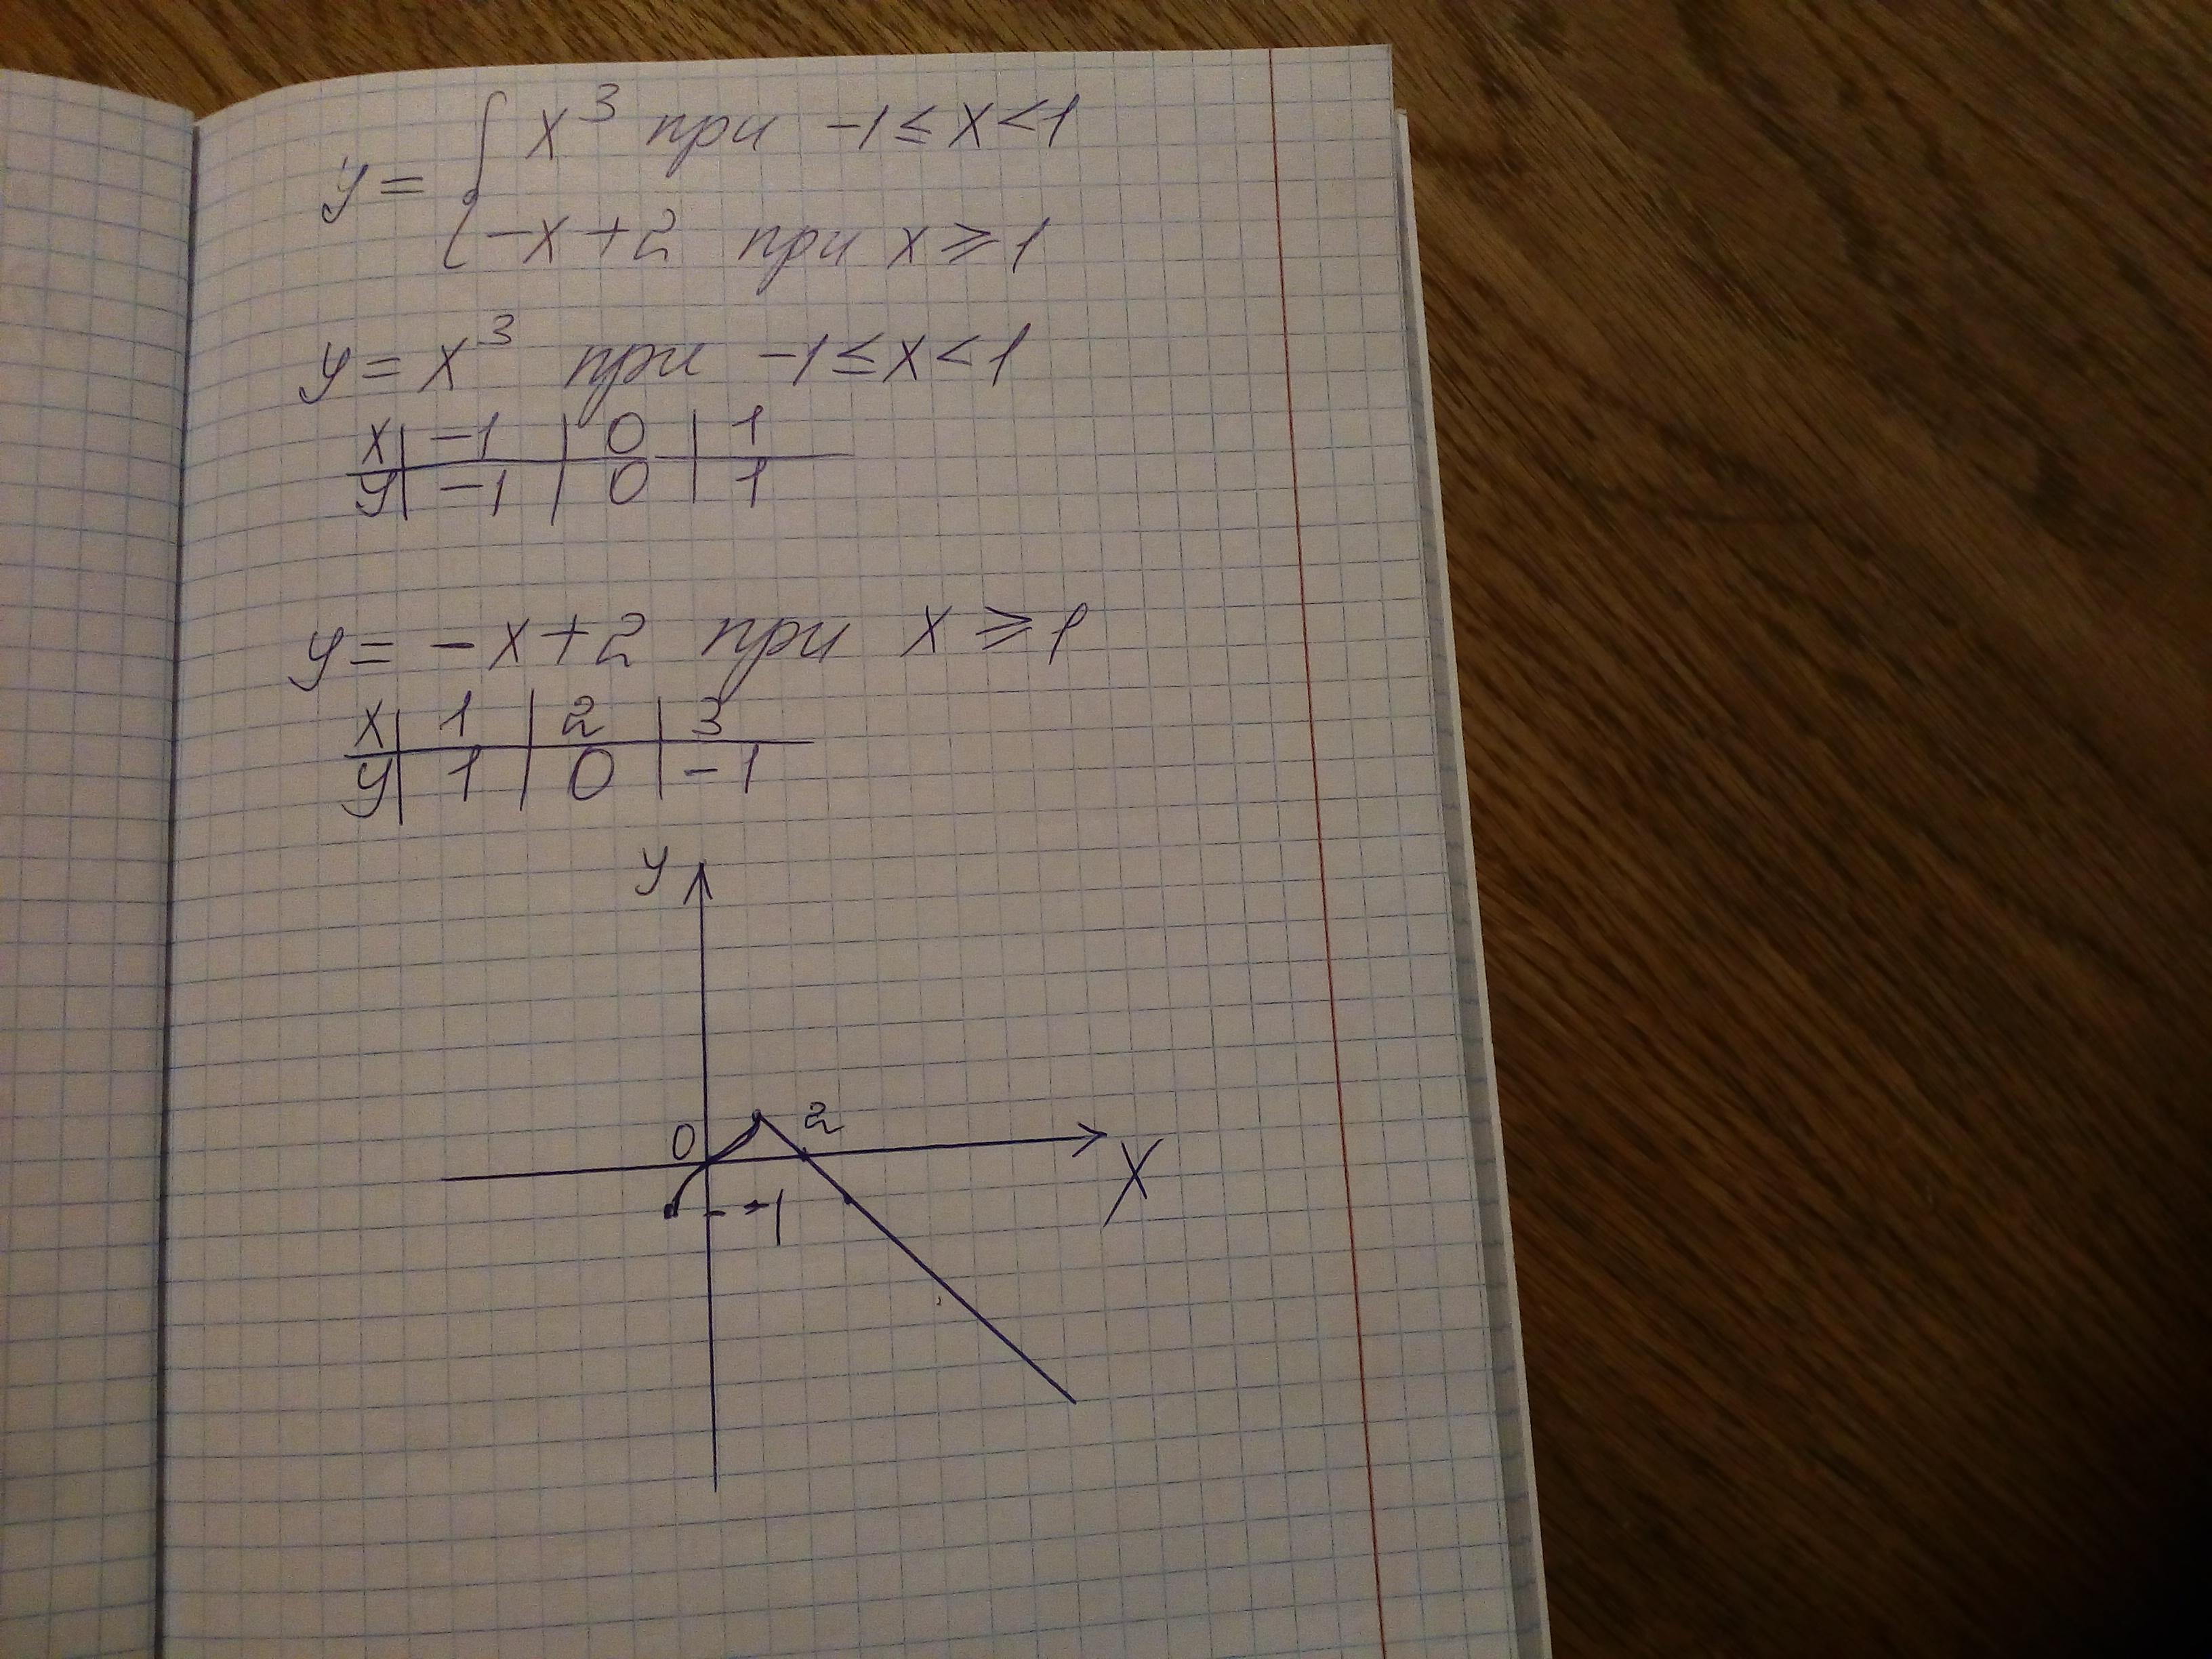 y = { x³ при -1 ≤ x < 1
-x + 2 при x ⩾ 1
y = x³ при -1 ≤ x < 1
x | -1 | 0 | 1
y | -1 | 0 | 1
y = -x + 2 при x ⩾ 1
x | 1 | 2 | 3
y | 1 | 0 | -1
y
0 2
X
-1